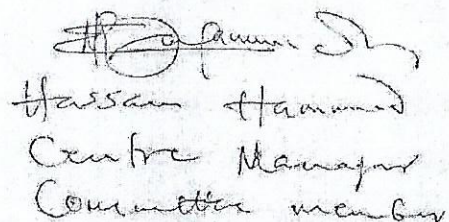 Hassan Hammed
Centre Manager
Committee member